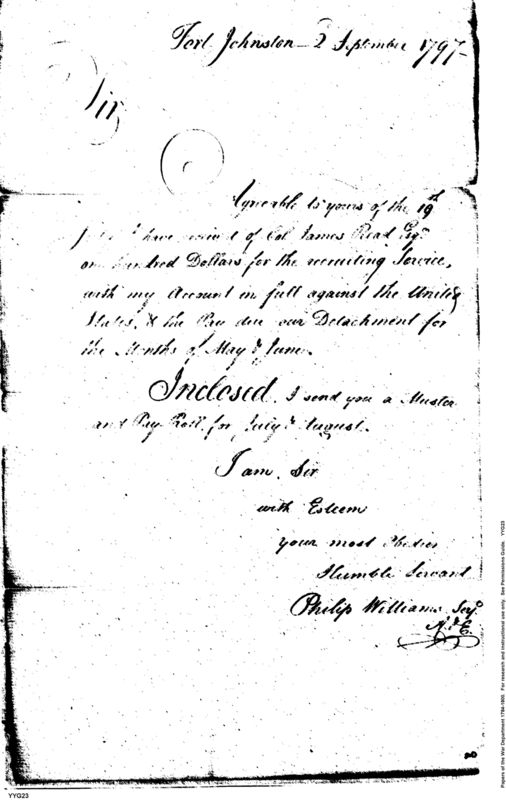 Fort Johnston 2 September 1797
Sir
Agreable to yours of the 19th
I have received of Col James Read Esqr
one hundred Dollars for the recruiting Service,
with my Account in full against the United
States, & the Pay due our Detachment for
the Months of May & June.
Inclosed, I send you a Muster
and Pay Roll for July & August.
I am, Sir
with Esteem
your most Obedien
Humble Servant
Philip Williams Serjt
A & E
YYG23
Papers of the War Department 1784-1800. For research and instructional use only. See Permissions Guide. YYG23